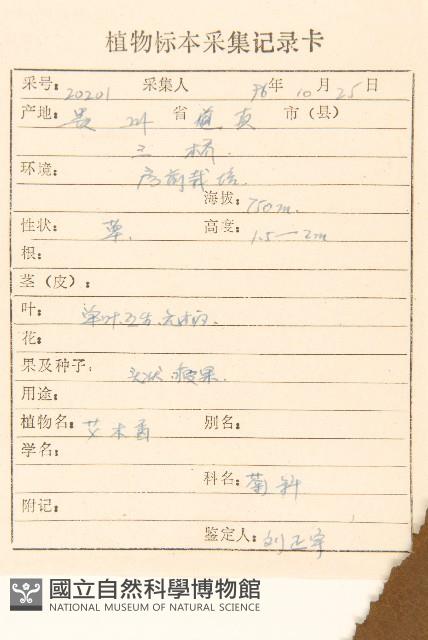 植物标本采集记录卡
采号：20201 采集人 96年10月25日
产地：贵州省道真市（县）
三桥
环境：房前栽培.
海拔：750m.
性状：草. 高度：1.5—2m
根：
茎（皮）：
叶：单叶互生.
花：
果及种子：头状瘦果.
用途：
植物名：艾木香 别名：
学名：
科名：菊科
附记：
鉴定人：刘正宇
國立自然科學博物館
NATIONAL MUSEUM OF NATURAL SCIENCE